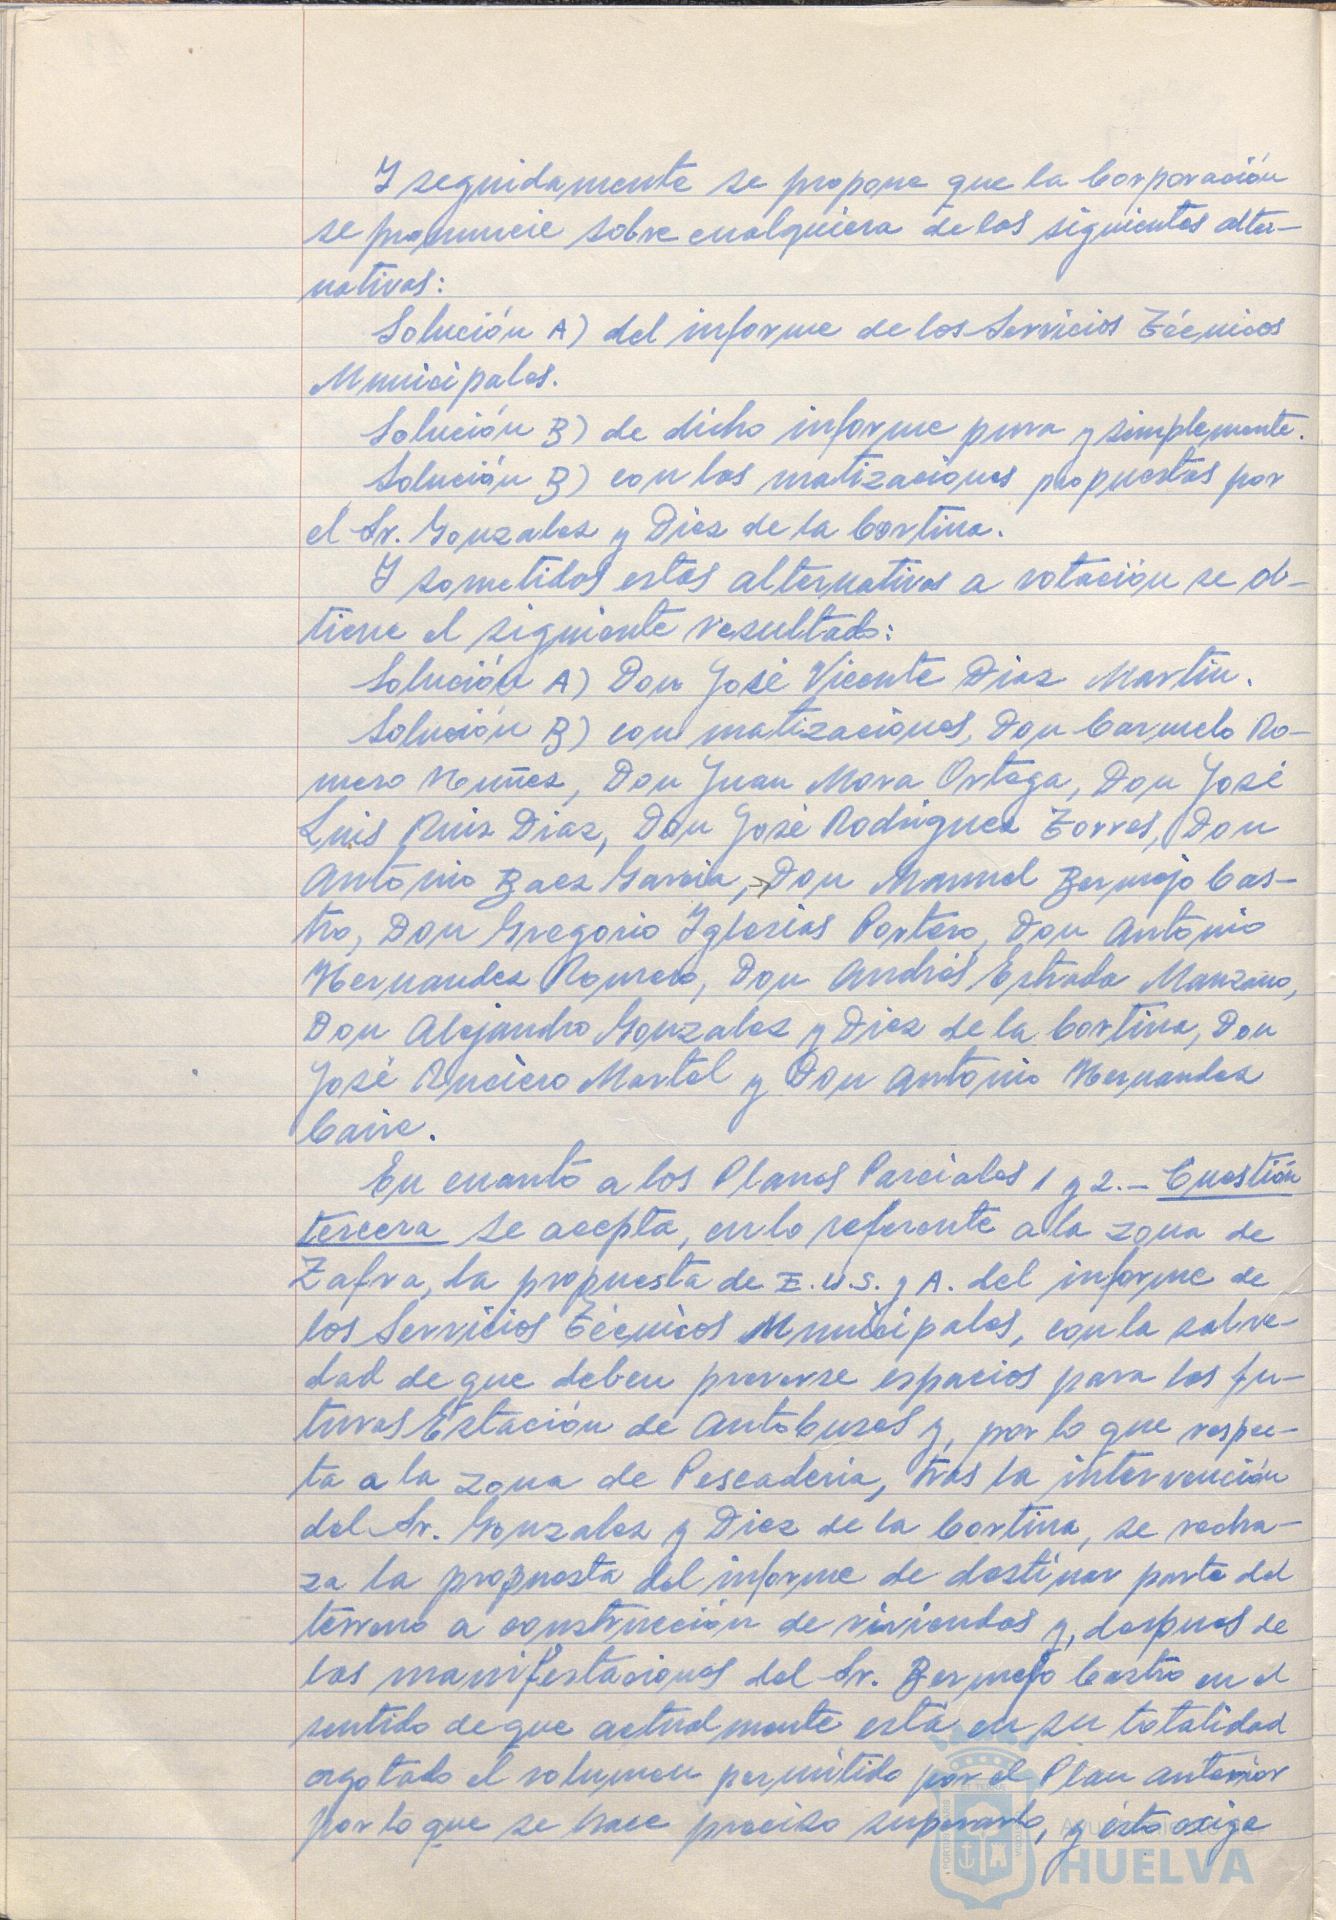 Y seguidamente se propone que la Corporación
se pronuncie sobre cualquiera de las siguientes alter-
nativas:
Solución A) del informe de los Servicios Técnicos
Municipales.
Solución B) de dicho informe pura y simplemente.
Solución B) con las matizaciones propuestas por
el Sr. Gonzalez y Diez de la Cortina.
Y sometidas estas alternativas a votación se ob-
tiene el siguiente resultado:
Solución A) Don José Vicente Diaz Martin.
Solución B) con matizaciones, Don Carmelo Ro-
mero Nuñez, Don Juan Mora Ortega, Don José
Luis Ruiz Diaz, Don José Rodriguez Torres, Don
Antonio Baez Garcia, Don Manuel Bermejo Cas-
tro, Don Gregorio Yglesias Portero, Don Antonio
Hernandez Romero, Don Andrés Estrada Manzano,
Don Alejandro Gonzalez y Diez de la Cortina, Don
José Ruciero Martel y Don Antonio Hernandez
Caire.
En cuanto a los Planes Parciales 1 y 2.- Cuestión
tercera se acepta, en lo referente a la zona de
Zafra, la propuesta de E.U.S. y A. del informe de
los Servicios Técnicos Municipales, con la salve-
dad de que deben preverse espacios para las fu-
turas Estación de Autobuses y, por lo que respec-
ta a la zona de Pescaderia, tras la intervención
del Sr. Gonzalez y Diez de la Cortina, se recha-
za la propuesta del informe de destinar parte del
terreno a construcción de viviendas y, despues de
las manifestaciones del Sr. Bermejo Castro en el
sentido de que actualmente está en su totalidad
agotado el volumen permitido por el Plan anterior
por lo que se hace preciso superarlo, y ésto exige
Ayuntamiento de
HUELVA